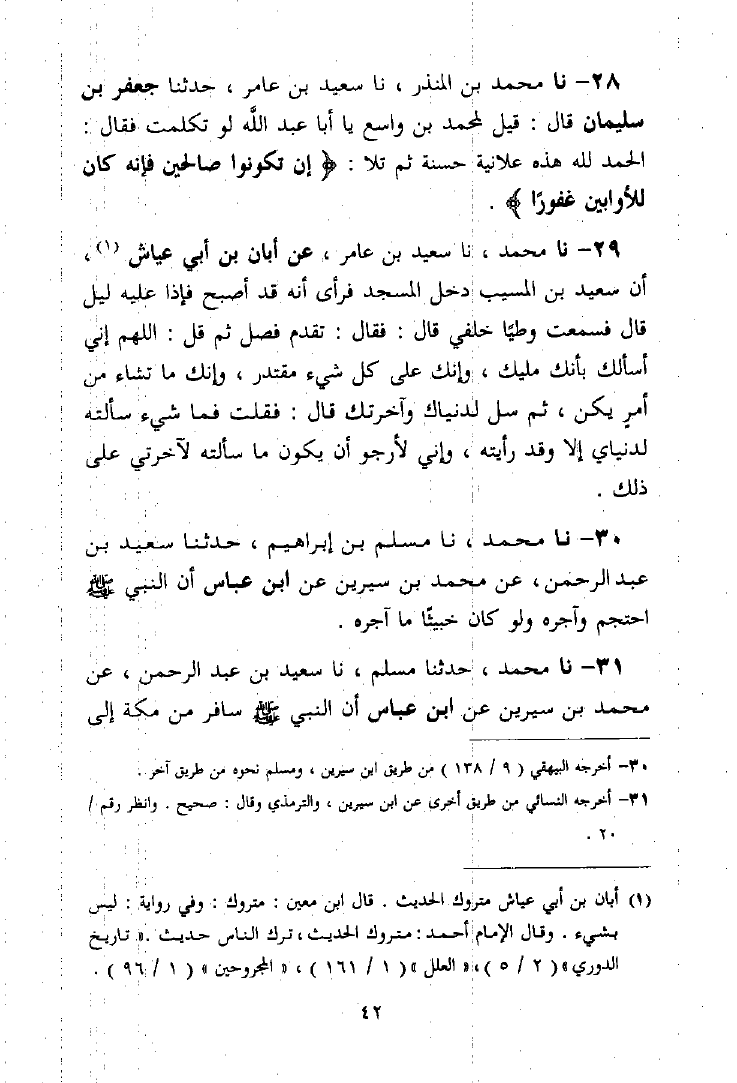 ٢٨- نا محمد بن المنذر ، نا سعيد بن عامر ، حدثنا جعفر بن
سليمان قال : قيل لمحمد بن واسع يا أبا عبد اللَّه لو تكلمت فقال :
الحمد لله هذه علانية حسنة ثم تلا : ﴿ إن تكونوا صالحين فإنه كان
للأوابين غفورًا ﴾ .
٢٩- نا محمد ، نا سعيد بن عامر ، عن أبان بن أبي عياش (١) ،
أن سعيد بن المسيب دخل المسجد فرأى أنه قد أصبح فإذا عليه ليل
قال فسمعت وطيًا خلفي قال : فقال : تقدم فصل ثم قل : اللهم إني
أسألك بأنك مليك ، وإنك على كل شيء مقتدر ، وإنك ما تشاء من
أمرٍ يكن ، ثم سل لدنياك وآخرتك قال : فقلت فما شيء سألته
لدنياي إلا وقد رأيته ، وإني لأرجو أن يكون ما سألته لآخرتي على
ذلك .
٣٠- نا محمد ، نا مسلم بن إبراهيم ، حدثنا سعيد بن
عبد الرحمن ، عن محمد بن سيرين عن ابن عباس أن النبي ﷺ
احتجم وآجره ولو كان خبيثًا ما آجره .
٣١- نا محمد ، حدثنا مسلم ، نا سعيد بن عبد الرحمن ، عن
محمد بن سيرين عن ابن عباس أن النبي ﷺ سافر من مكة إلى
٣٠- أخرجه البيهقي ( ٩ / ١٣٨ ) من طريق ابن سيرين ، ومسلم نحوه من طريق آخر .
٣١- أخرجه النسائي من طريق أخرى عن ابن سيرين ، والترمذي وقال : صحيح . وانظر رقم /
٢٠ .
(١) أبان بن أبي عياش متروك الحديث . قال ابن معين : متروك : وفي رواية : ليس
بشيء . وقال الإمام أحمد : متروك الحديث ، ترك الناس حديثه . « تاريخ
الدوري » ( ٢ / ٥ ) ، « العلل » ( ١ / ١٦١ ) ، « المجروحين » ( ١ / ٩٦ ) .
٤٢